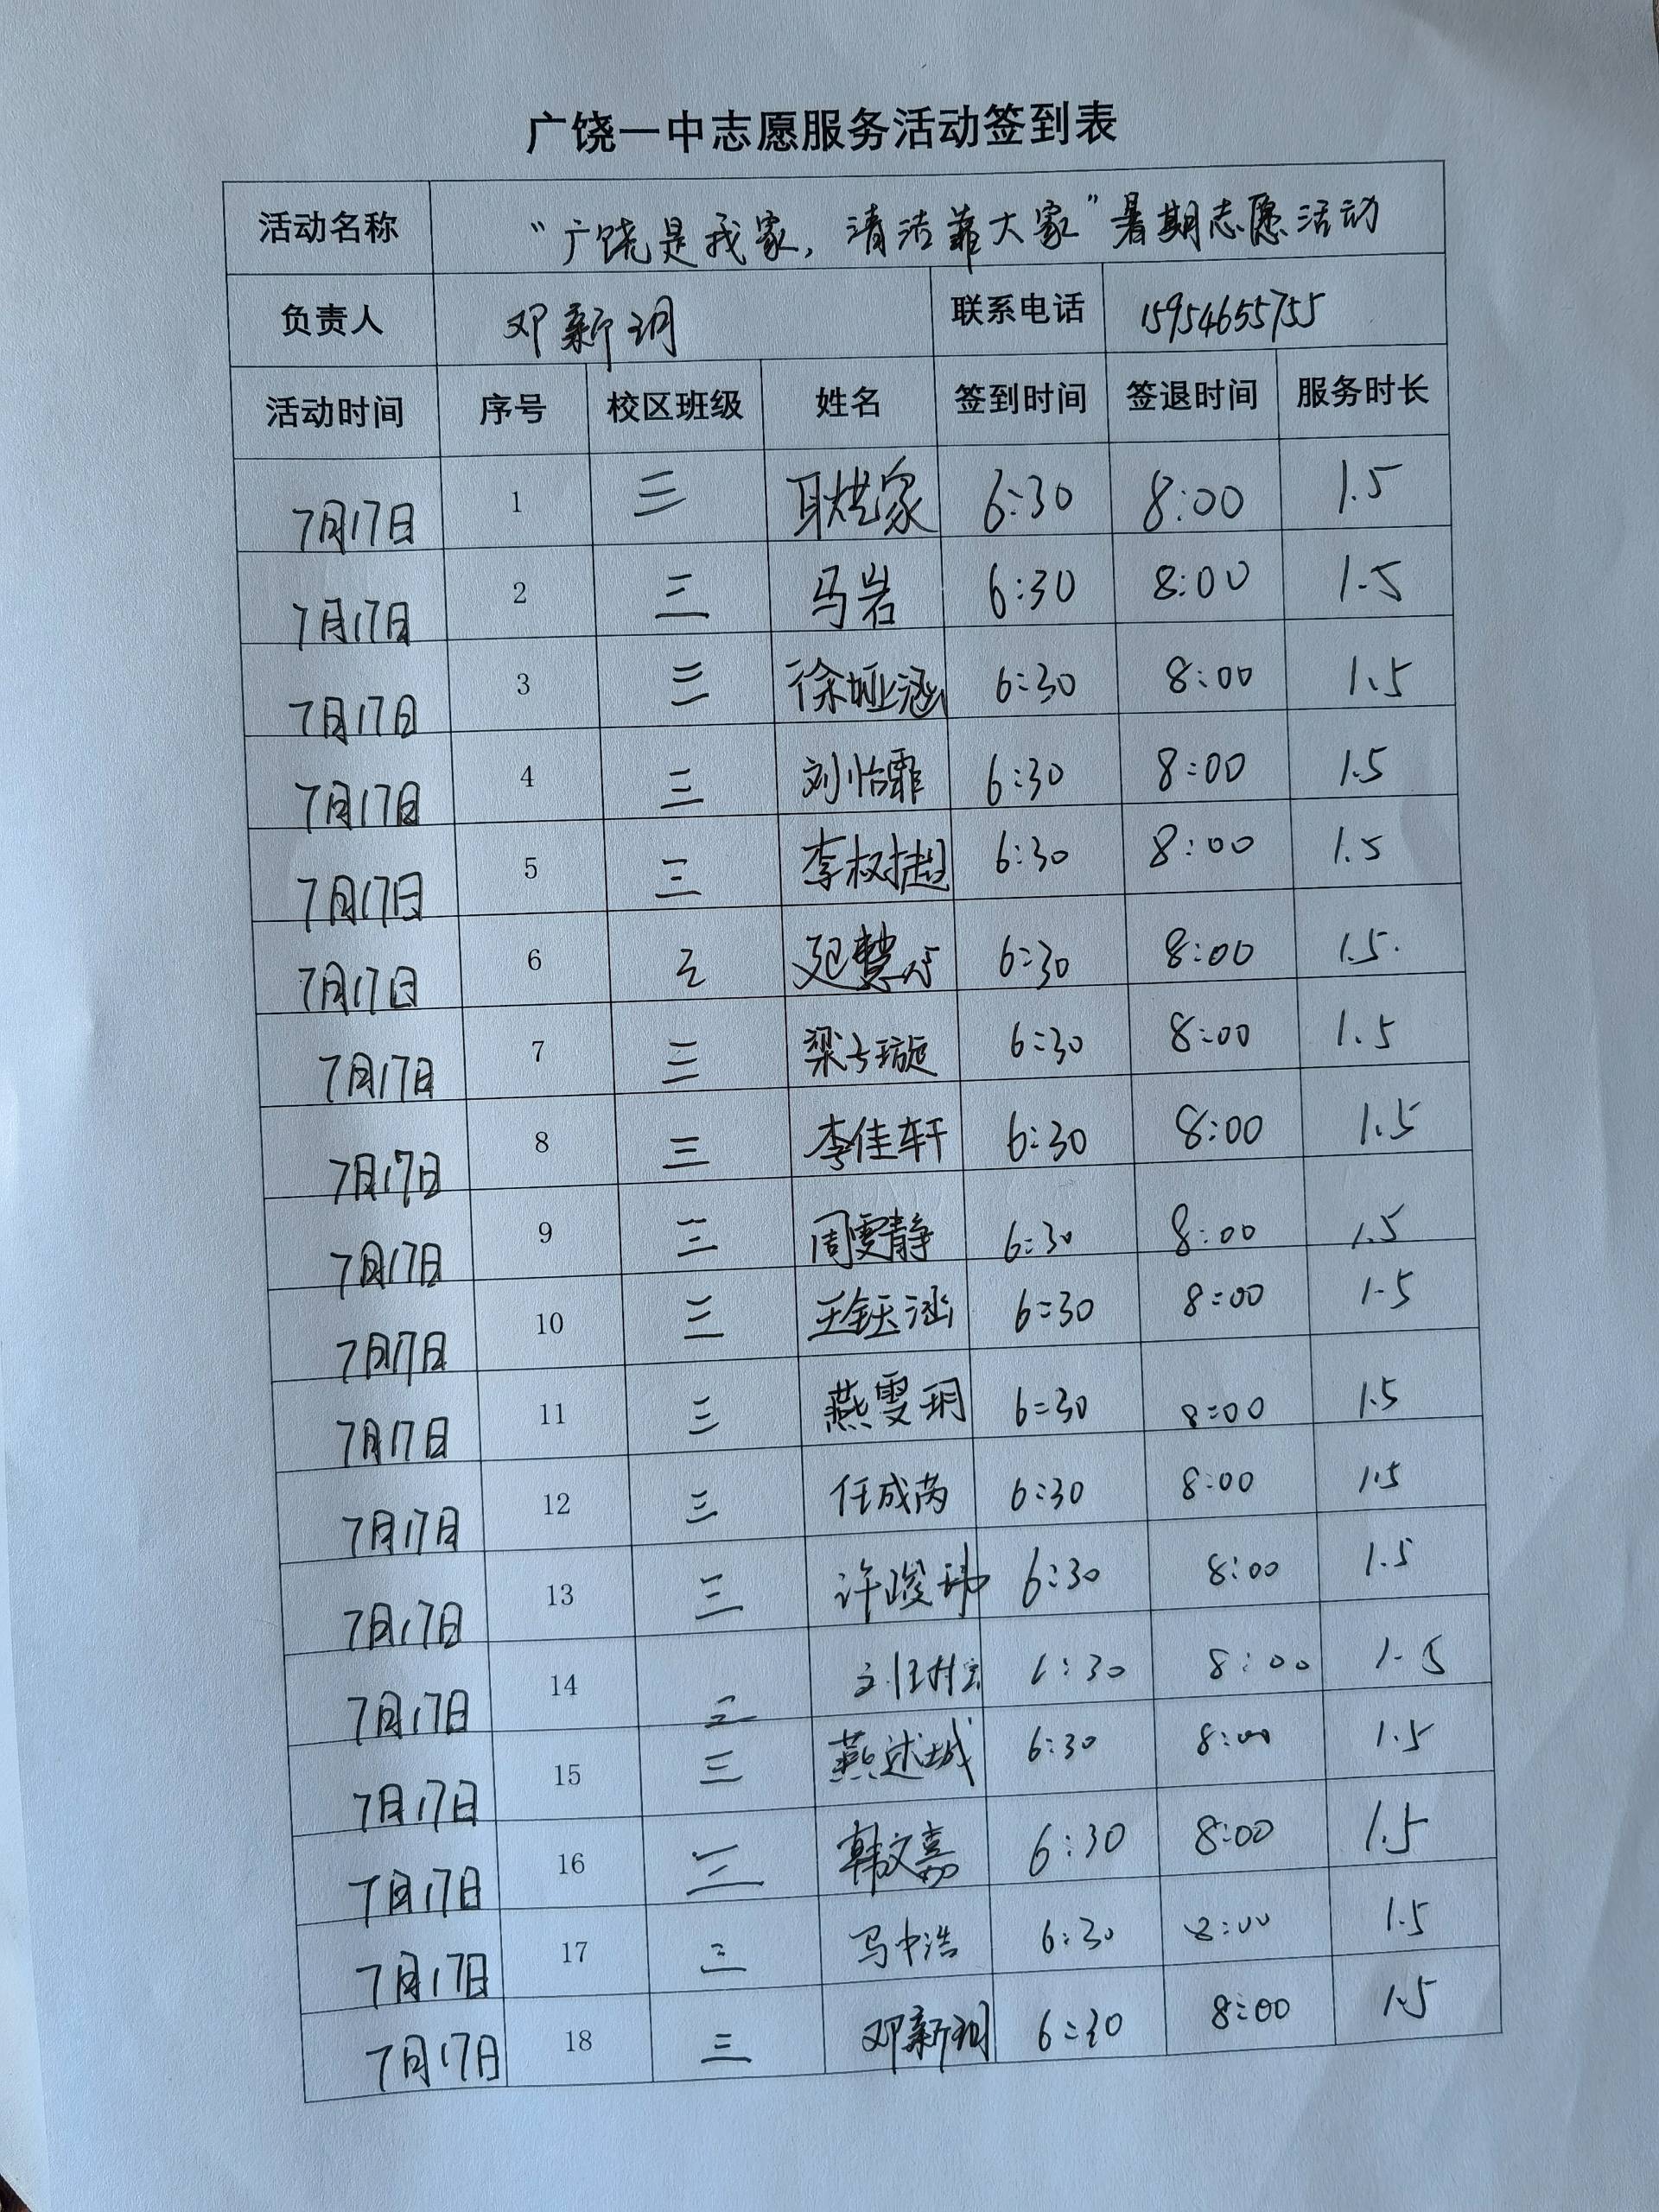 广饶一中志愿服务活动签到表
活动名称 “广饶是我家，清洁靠大家”暑期志愿活动
负责人 邓新玥 联系电话 15954655755
活动时间 序号 校区班级 姓名 签到时间 签退时间 服务时长
7月17日 1 三 6:30 8:00 1.5
7月17日 2 三 马岩 6:30 8:00 1.5
7月17日 3 三 徐娅涵 6:30 8:00 1.5
7月17日 4 三 刘怡霏 6:30 8:00 1.5
7月17日 5 三 李树超 6:30 8:00 1.5
7月17日 6 三 6:30 8:00 1.5
7月17日 7 三 梁予璇 6:30 8:00 1.5
7月17日 8 三 李佳轩 6:30 8:00 1.5
7月17日 9 三 周雯静 6:30 8:00 1.5
7月17日 10 三 王钰涵 6:30 8:00 1.5
7月17日 11 三 燕雯玥 6:30 8:00 1.5
7月17日 12 三 任成芮 6:30 8:00 1.5
7月17日 13 三 许峻玮 6:30 8:00 1.5
7月17日 14 三 6:30 8:00 1.5
7月17日 15 三 燕述城 6:30 8:00 1.5
7月17日 16 三 韩文嘉 6:30 8:00 1.5
7月17日 17 三 马中浩 6:30 8:00 1.5
7月17日 18 三 邓新玥 6:30 8:00 1.5